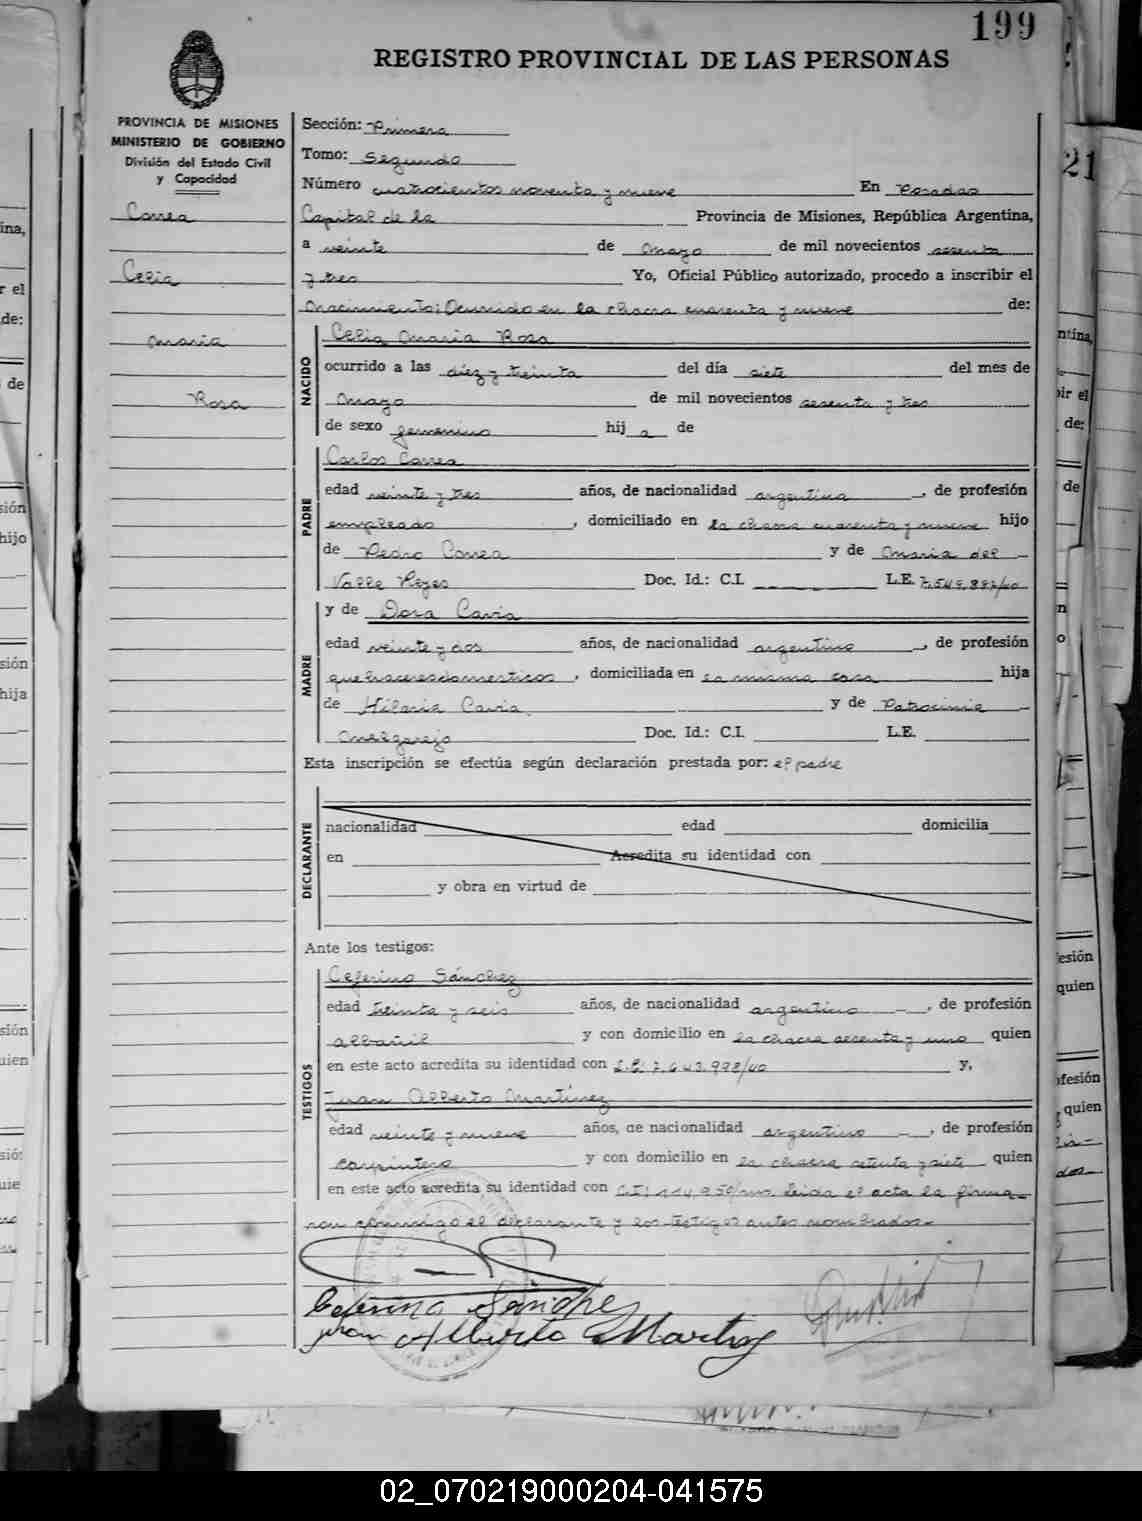 199
REGISTRO PROVINCIAL DE LAS PERSONAS
PROVINCIA DE MISIONES
MINISTERIO DE GOBIERNO
División del Estado Civil
y Capacidad
Correa
Celia
Maria
Rosa
Sección: Primera
Tomo: Segundo
Número cuatrocientos noventa y nueve En Posadas
Capital de la Provincia de Misiones, República Argentina,
a veinte de Mayo de mil novecientos sesenta
y tres Yo, Oficial Público autorizado, procedo a inscribir el
Nacimiento: Ocurrido en la chacra cuarenta y nueve de:
NACIDO
Celia Maria Rosa
ocurrido a las diez y treinta del día siete del mes de
Mayo de mil novecientos sesenta y tres
de sexo femenino hij a de
PADRE
Carlos Correa
edad veinte y tres años, de nacionalidad argentina, de profesión
empleado, domiciliado en la chacra cuarenta y nueve hijo
de Pedro Correa y de Maria del
Valle Reyes Doc. Id.: C.I. L.E. 7.549.887/40
MADRE
y de Dora Cavia
edad veinte y dos años, de nacionalidad argentina, de profesión
quehaceres domesticos, domiciliada en la misma casa hija
de Hilaria Cavia y de Patrocinia
Melgarejo Doc. Id.: C.I. L.E.
Esta inscripción se efectúa según declaración prestada por: el padre
DECLARANTE
nacionalidad edad domicilia
en Acredita su identidad con
y obra en virtud de
Ante los testigos:
TESTIGOS
Ceferino Sánchez
edad treinta y seis años, de nacionalidad argentino, de profesión
albañil y con domicilio en la chacra sesenta y uno quien
en este acto acredita su identidad con L.E. 7.643.998/40 y,
Juan Alberto Martínez
edad veinte y nueve años, de nacionalidad argentino, de profesión
carpintero y con domicilio en la chacra setenta y siete quien
en este acto acredita su identidad con C.I: 114.950/mns. leida el acta la firma-
ron conmigo el declarante y los testigos antes nombrados-
Ceferino Sánchez
Juan Alberto Martinez
02_070219000204-041575